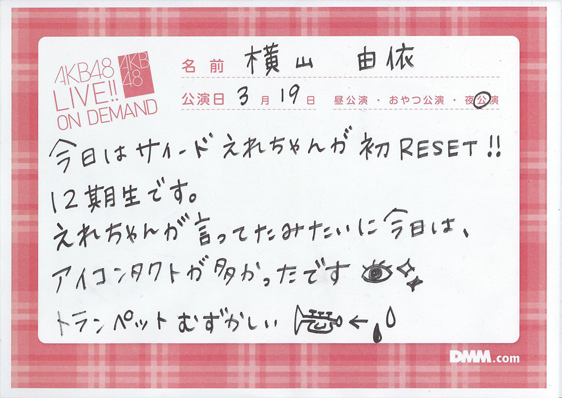 AKB48
LIVE!!
ON DEMAND
AKB
48
名前 横山 由依
公演日 3月19日 昼公演・おやつ公演・夜公演
今日はサイード えれちゃんが 初RESET!!
12期生です。
えれちゃんが言ってたみたいに今日は、
アイコンタクトが多かったです
トランペットむずかしい ←
DMM.com